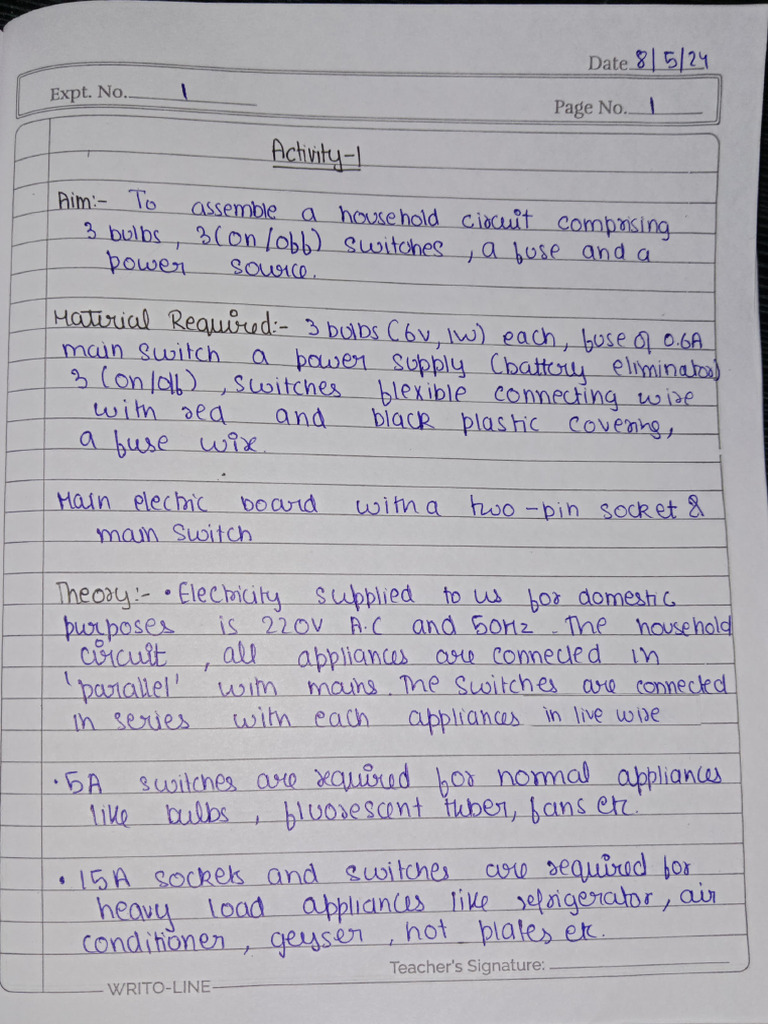 Date 8/5/24
Expt. No. 1
Page No. 1
Activity-1
Aim:- To assemble a household circuit comprising
3 bulbs, 3 (on/off) switches, a fuse and a
power source.
Material Required:- 3 bulbs (6v, 1w) each, fuse of 0.6A
main switch a power supply (battery eliminator)
3 (on/off), switches flexible connecting wire
with red and black plastic covering,
a fuse wire.
Main electric board with a two-pin socket &
main switch
Theory:- • Electricity supplied to us for domestic
purposes is 220V A.C and 50Hz. The household
circuit, all appliances are connected in
'parallel' with mains. The switches are connected
in series with each appliances in live wire
• 5A switches are required for normal appliances
like bulbs, fluorescent tuber, fans etc.
• 15A sockets and switches are required for
heavy load appliances like refrigerator, air
conditioner, geyser, hot plates etc.
Teacher's Signature:
WRITO-LINE